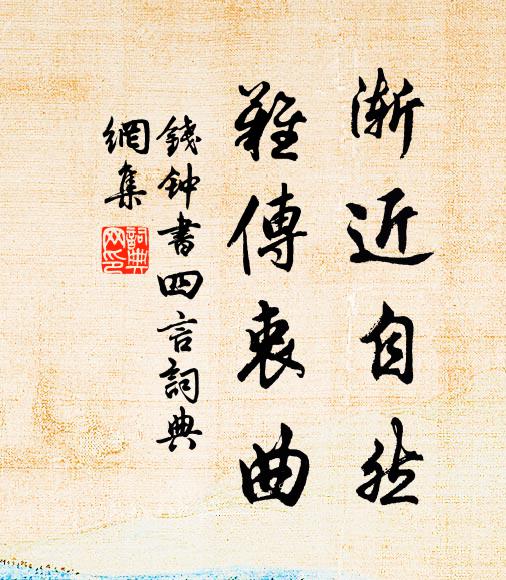 漸近自然
難傳衷曲
錢钟書四言詞典
網集
詞典
网印